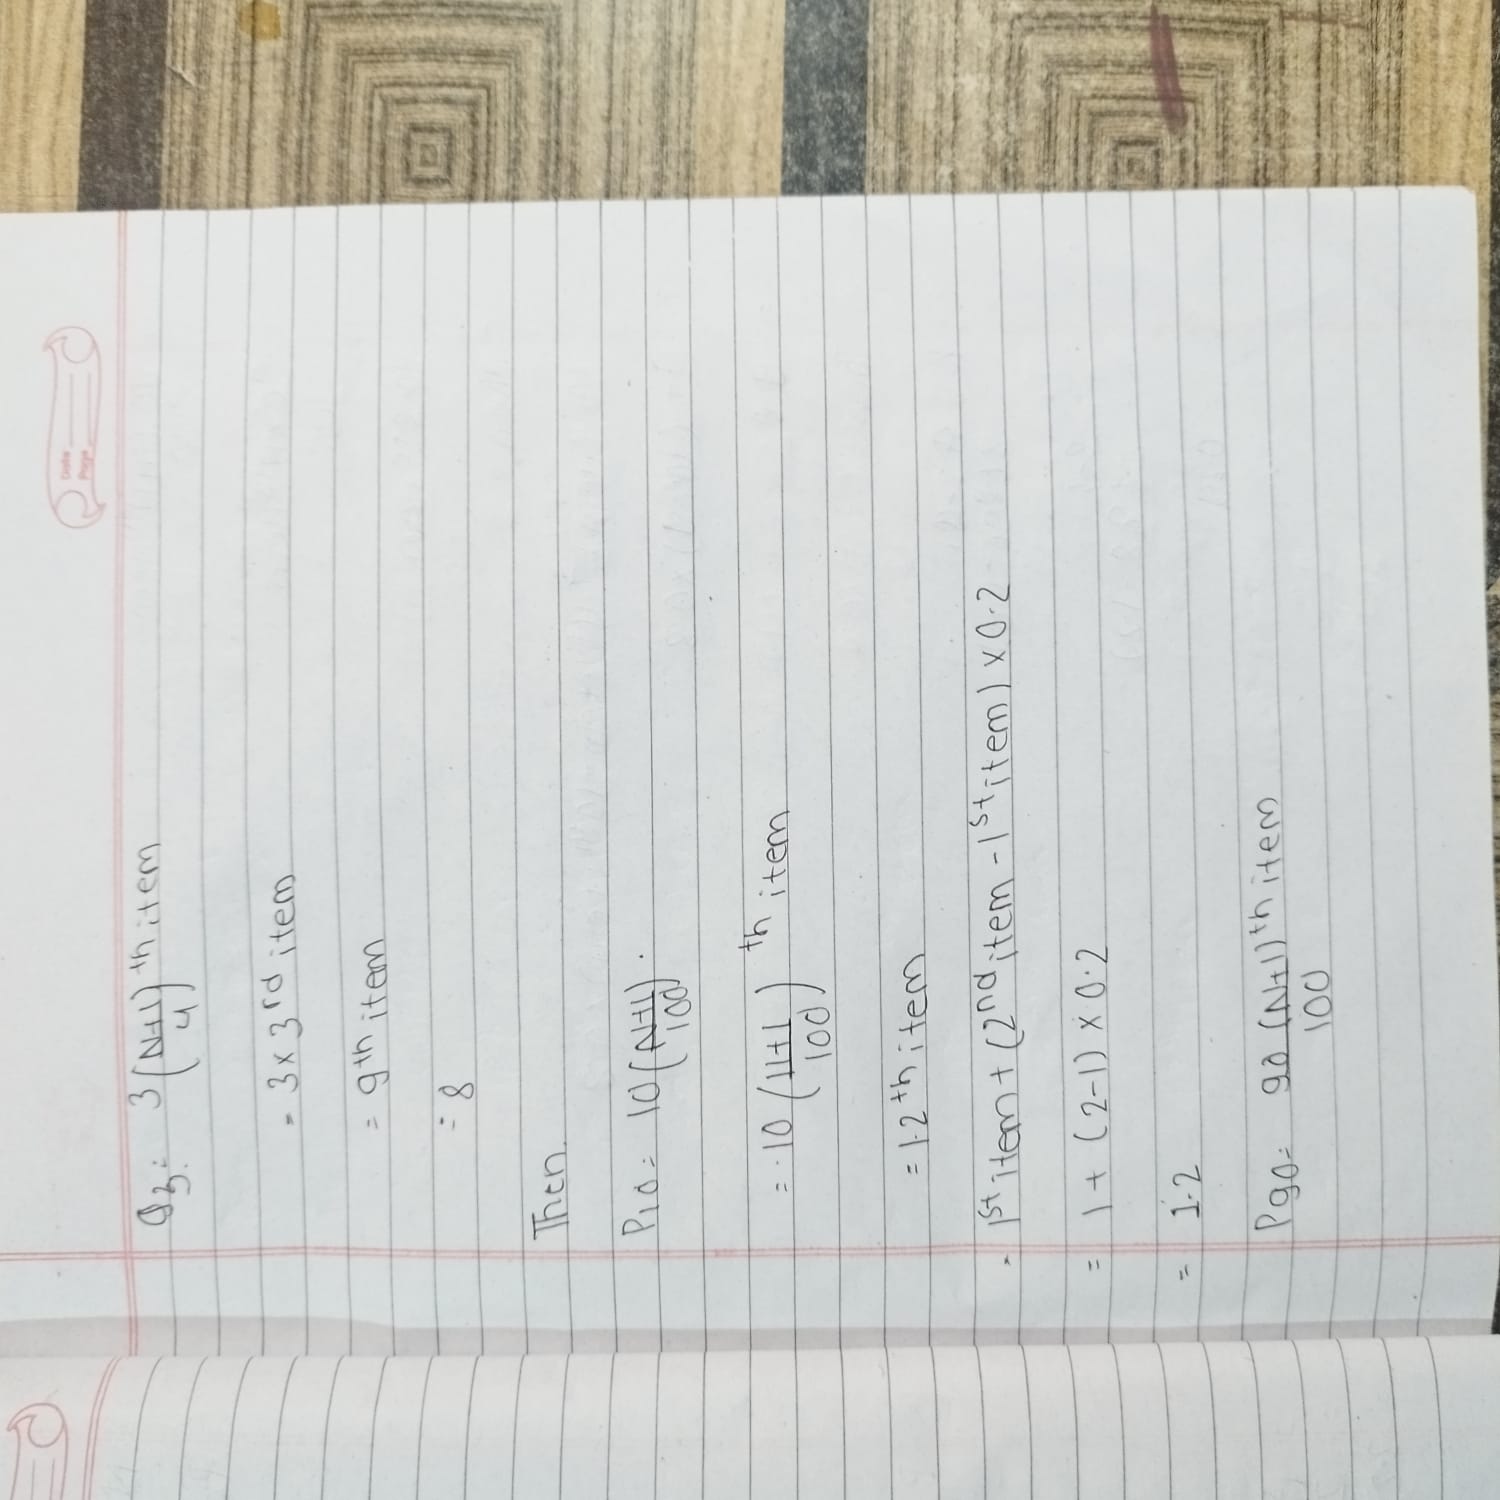 Date
Page
Q3: 3(N+1/4)th item
= 3x3rd item
= 9th item
= 8
Then.
P10 = 10(N+1/100)
= 10(11+1/100)th item
= 1.2th item
= 1st item + (2nd item - 1st item) x 0.2
= 1 + (2-1) x 0.2
= 1.2
P90 = 90(N+1)th item
100